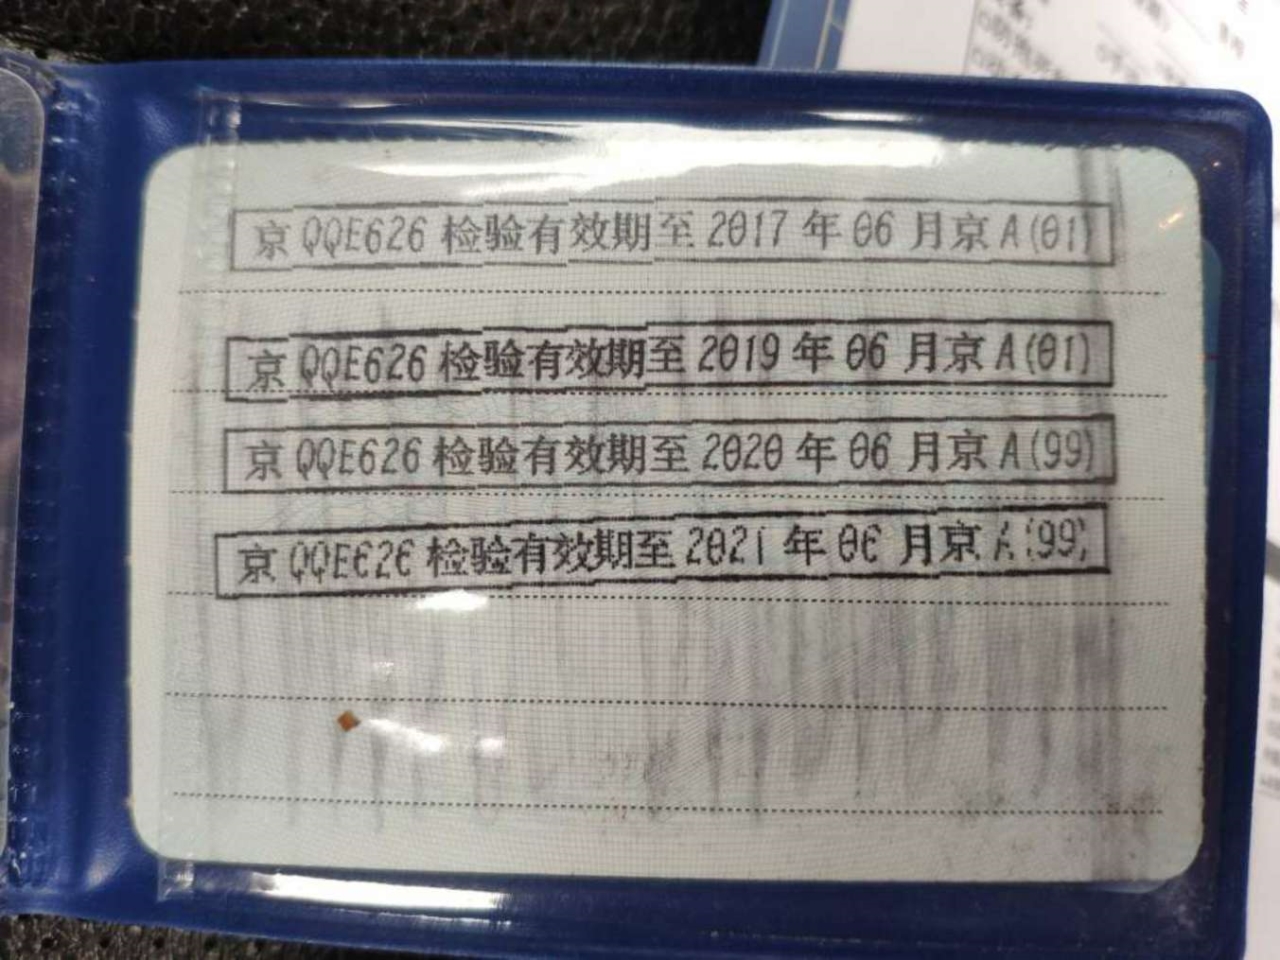 京 QQE626 检验有效期至 2017 年 06 月京 A(01)
京 QQE626 检验有效期至 2019 年 06 月京 A(01)
京 QQE626 检验有效期至 2020 年 06 月京 A(99)
京 QQE626 检验有效期至 2021 年 06 月京 A(99)